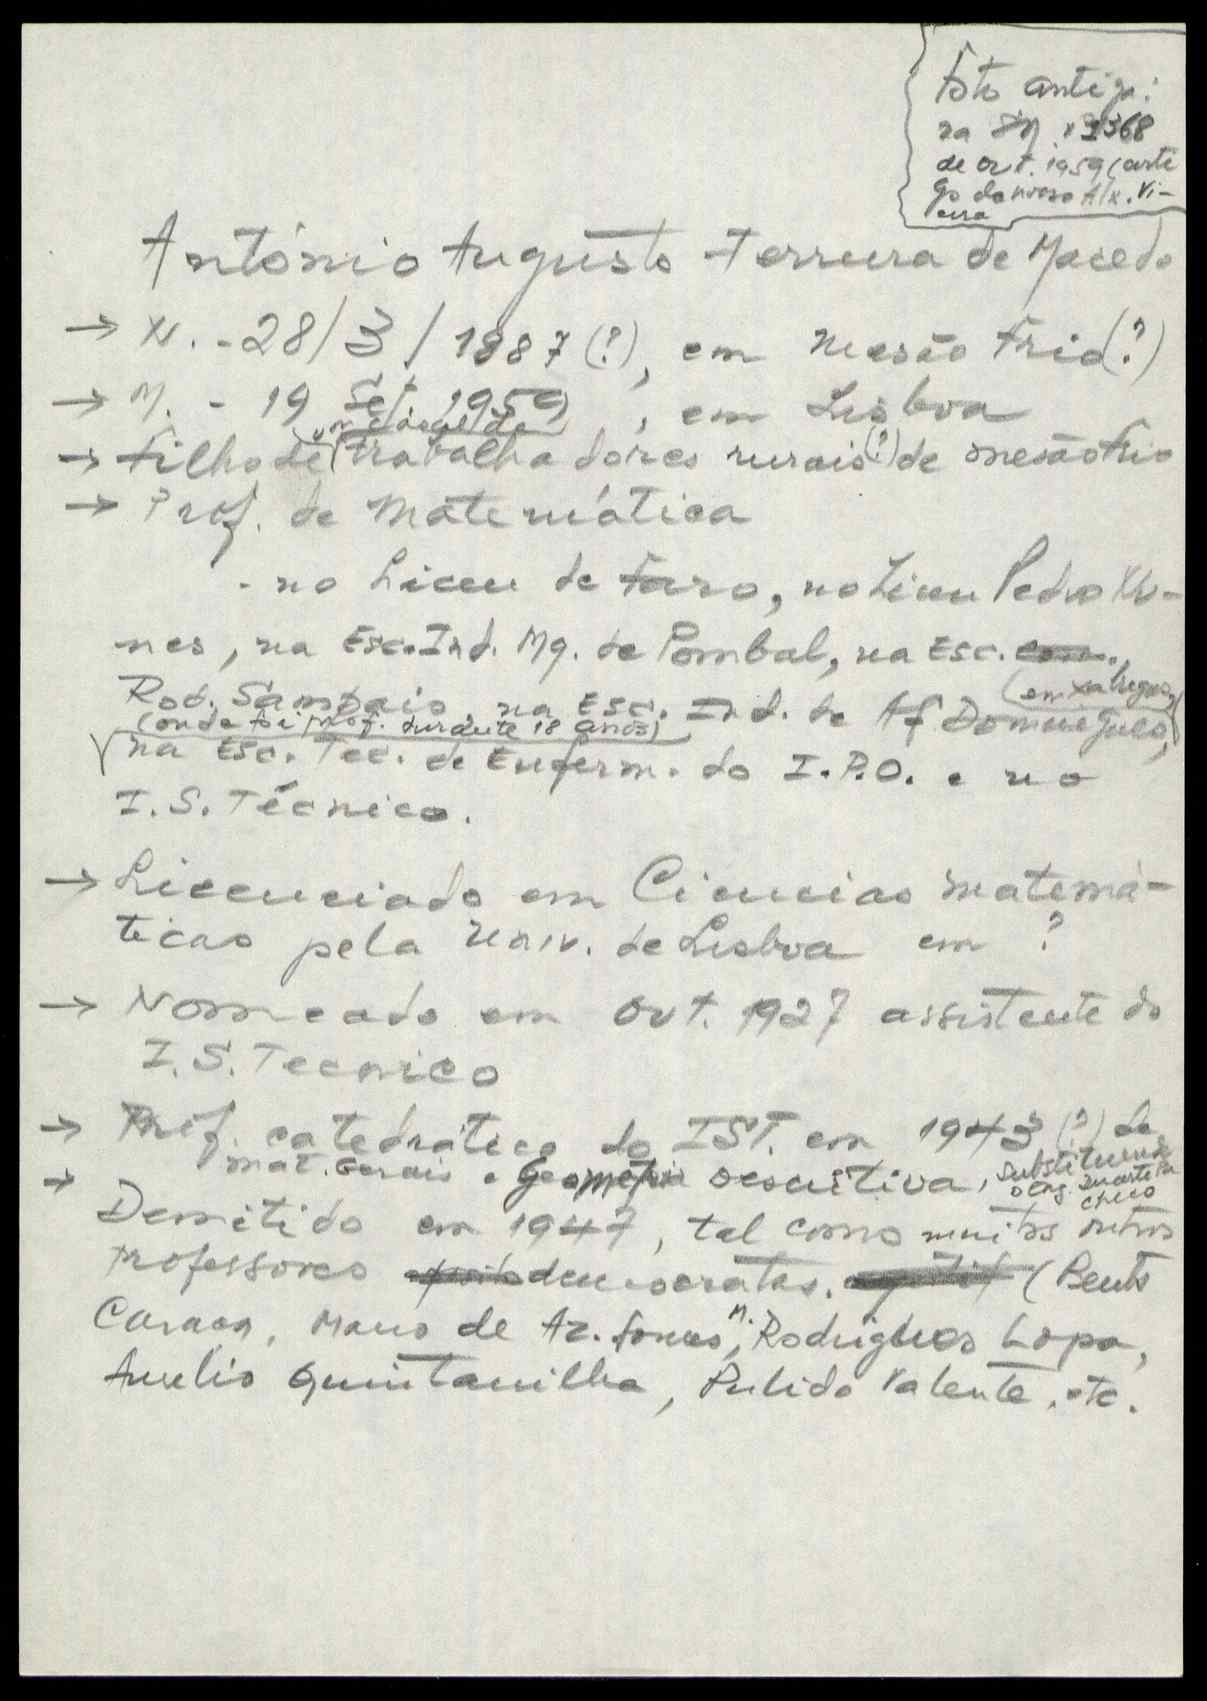 Foto antiga:
na SN. 1368
de Out. 1959 (arti
go do nosso Alx. Vi-
eira
António Augusto Ferreira de Macedo
→ N. - 28/3/1887 (?), em Mesão Frio (?)
→ M. - 19 Set. 1959, em Lisboa
um casal de
→ Filho de trabalhadores rurais (?) de Mesão Frio
→ Prof. de Matemática
- no Liceu de Faro, no Liceu Pedro Nu-
nes, na Esc. Ind. Mq. de Pombal, na Esc. com.,
(em Xabregas)
Rod. Sampaio, na Esc. Ind. de Af Domingues,
(onde foi prof. durante 18 anos)
na Esc. Tec. de Enferm. do I.P.O. e no
I.S. Técnico.
→ Licenciado em Ciencias matemá-
ticas pela Univ. de Lisboa em ?
→ Nomeado em Out. 1927 assistente do
I.S. Tecnico
→ Prof. catedrático do IST. em 1943 (?) de
→ Mat. Gerais e Geometria Descritiva, substituindo
o eng. Duarte Pa
checo
Demitido em 1947, tal como muitos outros
professores democratas. (Bento
Caraça, Mario de Az. Gomes, M. Rodrigues Lapa,
Aurelio Quintanilha, Pulido Valente, etc.